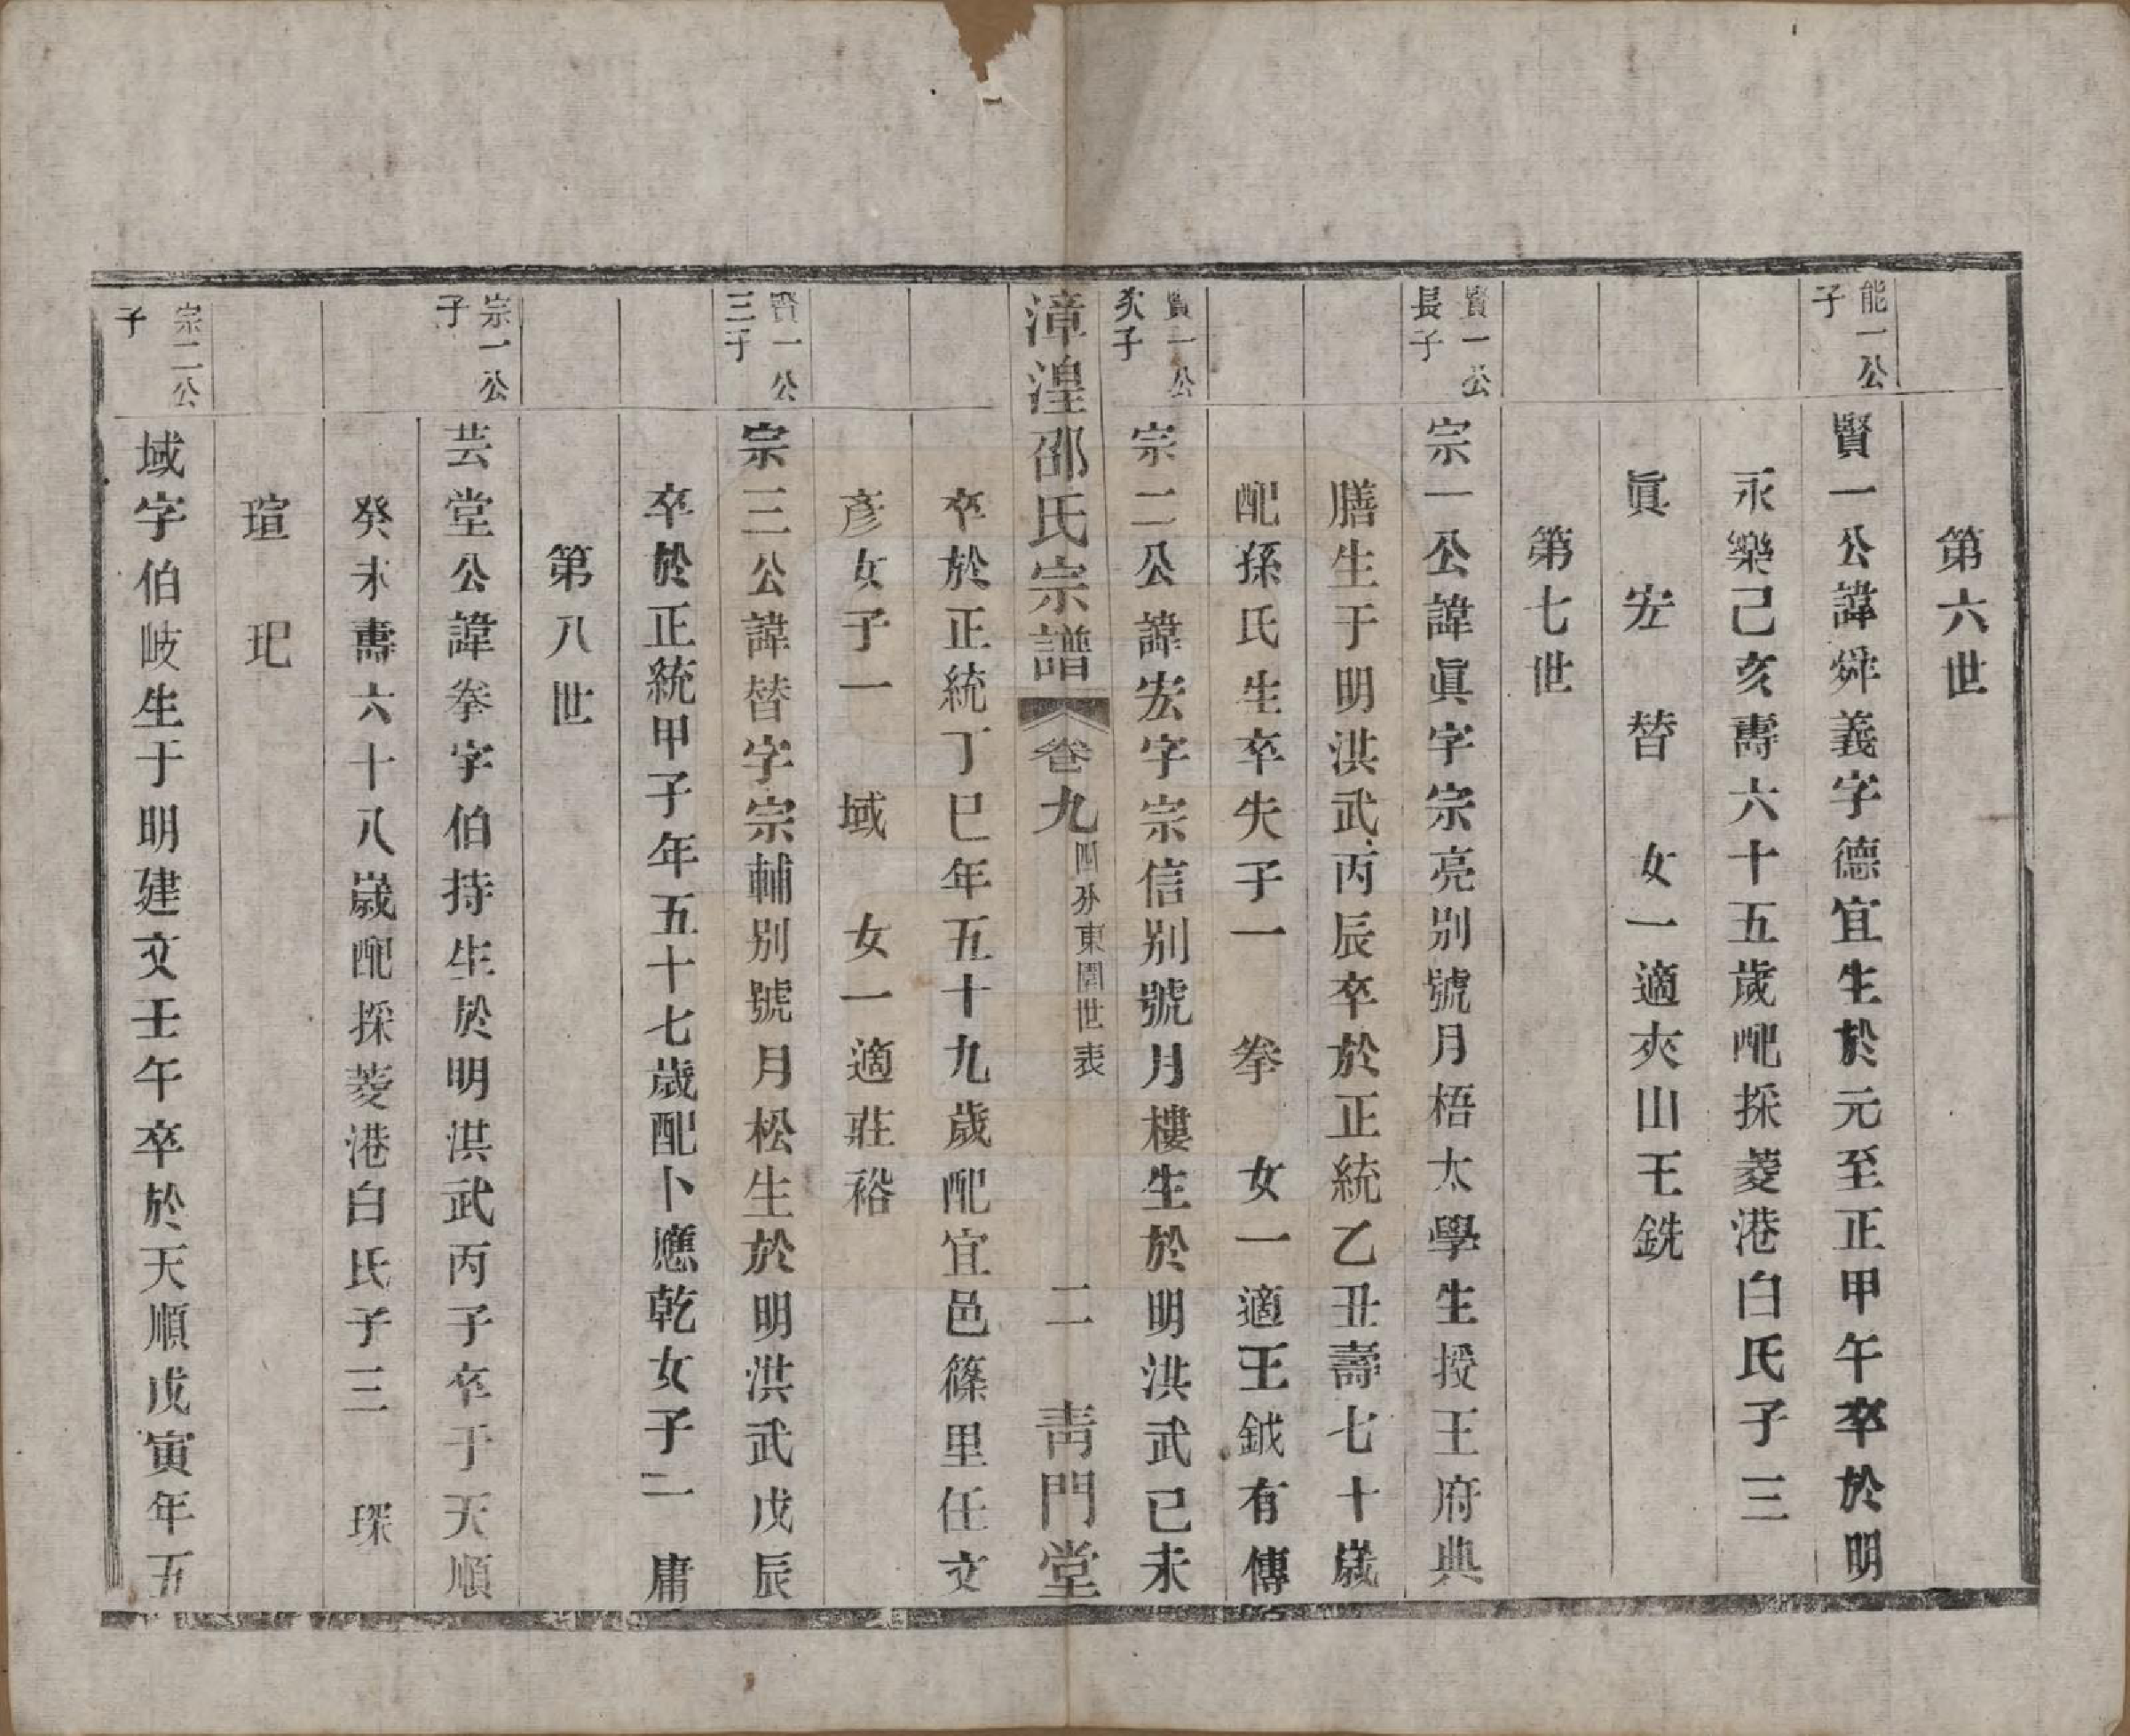 第六世
能一公子
賢一公諱舜義字德宜生於元至正甲午卒於明
永樂己亥壽六十五歲配採菱港白氏子三
眞 宏 替 女一適夾山王銑
第七世
賢一公長子
宗一公諱眞字宗亮别號月梧太學生授王府典
膳生于明洪武丙辰卒於正統乙丑壽七十歲
配孫氏生卒失子一 拳 女一適王鉞有傳
賢一公次子
宗二公諱宏字宗信别號月樓生於明洪武已未
漳湟邵氏宗譜 卷九 四分東園世表 二 靑門堂
卒於正統丁巳年五十九歲配宜邑篠里任文
彦女子一 域 女一適莊裕
賢一公三子
宗三公諱替字宗輔别號月松生於明洪武戊辰
卒於正統甲子年五十七歲配卜應乾女子二 庸
第八世
宗一公子
芸堂公諱拳字伯持生於明洪武丙子卒于天順
癸未壽六十八歲配採菱港白氏子三 琛
瑄 玘
宗二公子
域字伯岐生于明建文壬午卒於天順戊寅年五